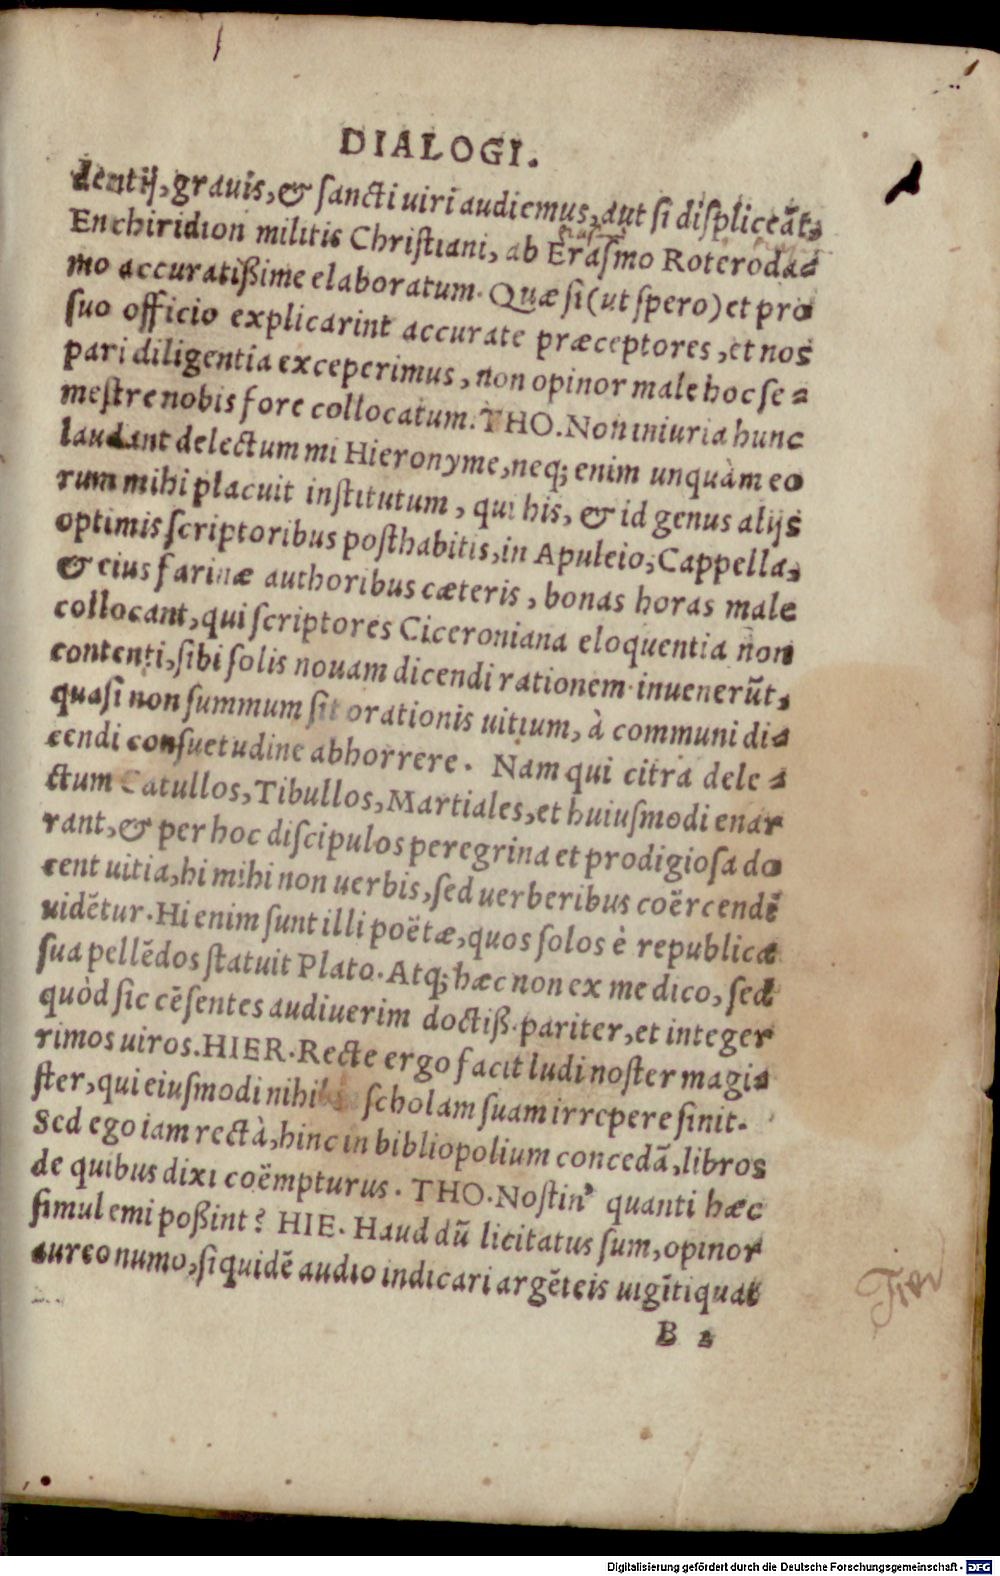 DIALOGI.
dentij, grauis, & ſancti uiri audiemus, aut ſi diſpliceāt,
Enchiridion militis Chriſtiani, ab Eraſmo Roteroda=
mo accuratißime elaboratum. Quæ ſi (ut ſpero) et pro
ſuo officio explicarint accurate præceptores, et nos
pari diligentia exceperimus, non opinor male hoc ſe=
meſtre nobis fore collocatum. THO. Non iniuria hunc
laudant delectum mi Hieronyme, neq; enim unquàm eo
rum mihi placuit inſtitutum, qui his, & id genus alijs
optimis ſcriptoribus poſthabitis, in Apuleio, Cappella,
& eius farinæ authoribus cæteris, bonas horas male
collocant, qui ſcriptores Ciceroniana eloquentia non
contenti, ſibi ſolis nouam dicendi rationem inuenerūt,
quaſi non ſummum ſit orationis uitium, à communi di=
cendi conſuetudine abhorrere. Nam qui citra dele=
ctum Catullos, Tibullos, Martiales, et huiuſmodi enar
rant, & per hoc diſcipulos peregrina et prodigioſa do
cent uitia, hi mihi non uerbis, ſed uerberibus coërcendi
uidētur. Hi enim ſunt illi poëtæ, quos ſolos è republica
ſua pellēdos ſtatuit Plato. Atq; hæc non ex me dico, ſed
quòd ſic cēſentes audiuerim doctiß. pariter, et integer
rimos uiros. HIER. Recte ergo facit ludi noſter magi=
ſter, qui eiuſmodi nihil ſcholam ſuam irrepere ſinit.
Sed ego iam rectà, hinc in bibliopolium concedā, libros
de quibus dixi coëmpturus. THO. Noſtin' quanti hæc
ſimul emi poßint? HIE. Haud dū licitatus ſum, opinor
aureo numo, ſiquidē audio indicari argēteis uigīti quat
B 2
Digitalisierung gefördert durch die Deutsche Forschungsgemeinschaft - DFG